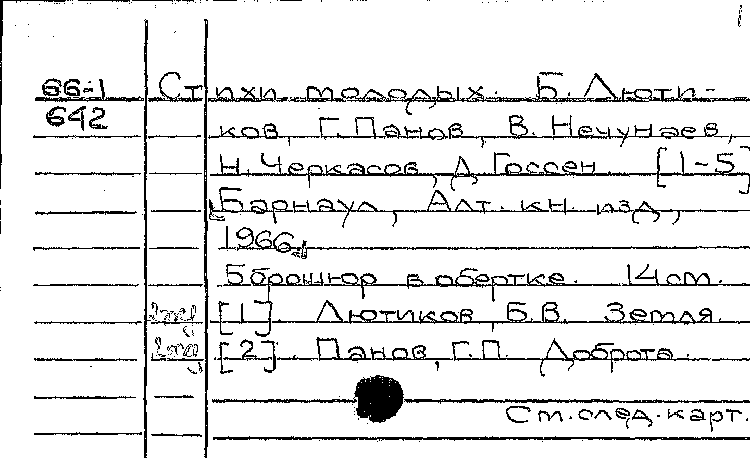 66-1 Стихи молодых. Б. Люти-
642 ков, Г. Панов, В. Нечунаев,
Н. Черкасов, Д. Госсен. [1-5]
Барнаул, Алт. кн. изд,
1966.
5 брошюр в обертке. 14 см.
[1]. Лютиков, Б.В. Земля.
[2]. Панов, Г.П. Доброта.
См. след. карт.